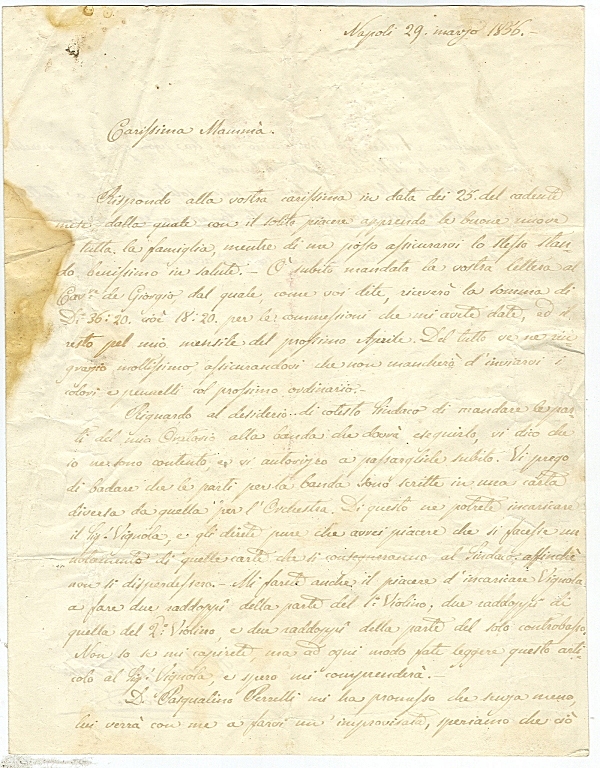 Napoli 29. marzo 1856.-
Carissima Mammà.
Rispondo alla vostra carissima in data dei 25. del cadente
mese, dalla quale con il solito piacere apprendo le buone nuove
tutta la famiglia, mentre di me posso assicurarvi lo stesso stan-
do benissimo in salute.- O subito mandata la vostra lettera al
Cav.re de Giorgio, dal quale, come voi dite, riceverò la somma di
D.i 36:20. cioè 18:20. per le commessioni che mi avete date, ed il
resto pel mio mensile del prossimo Aprile. Del tutto ve ne rin-
grazio moltissimo, assicurandovi che non mancherò d'inviarvi i
colori e pennelli col prossimo ordinario.-
Riguardo al desiderio di cotesto Sindaco di mandare le par-
ti del mio Oratorio alla banda che dovrà eseguirlo, vi dico che
io ne sono contento e vi autorizzo a passargliele subito. Vi prego
di badare che le parti per la banda sono scritte in una carta
diversa da quella per l'Orchestra. Di questo ne potrete incaricare
il Sig. Vignola, e gli direte pure che avrei piacere che si facesse un
notamento di quelle carte che si consegneranno al Sindaco, affinchè
non si disperdessero.- Mi farete anche il piacere d'incaricare Vignola
a fare due raddoppj della parte del 1.° Violino, due raddoppj di
quella del 2.° Violino, e due raddoppj della parte del solo controbasso.
Non so se mi capirete, ma ad ogni modo fate leggere questo arti-
colo al Sig. Vignola, e spero mi comprenderà.-
D. Pasqualino Perrelli mi ha promesso che senza meno,
lui verrà con me a farvi un'improvisata, speriamo che ciò